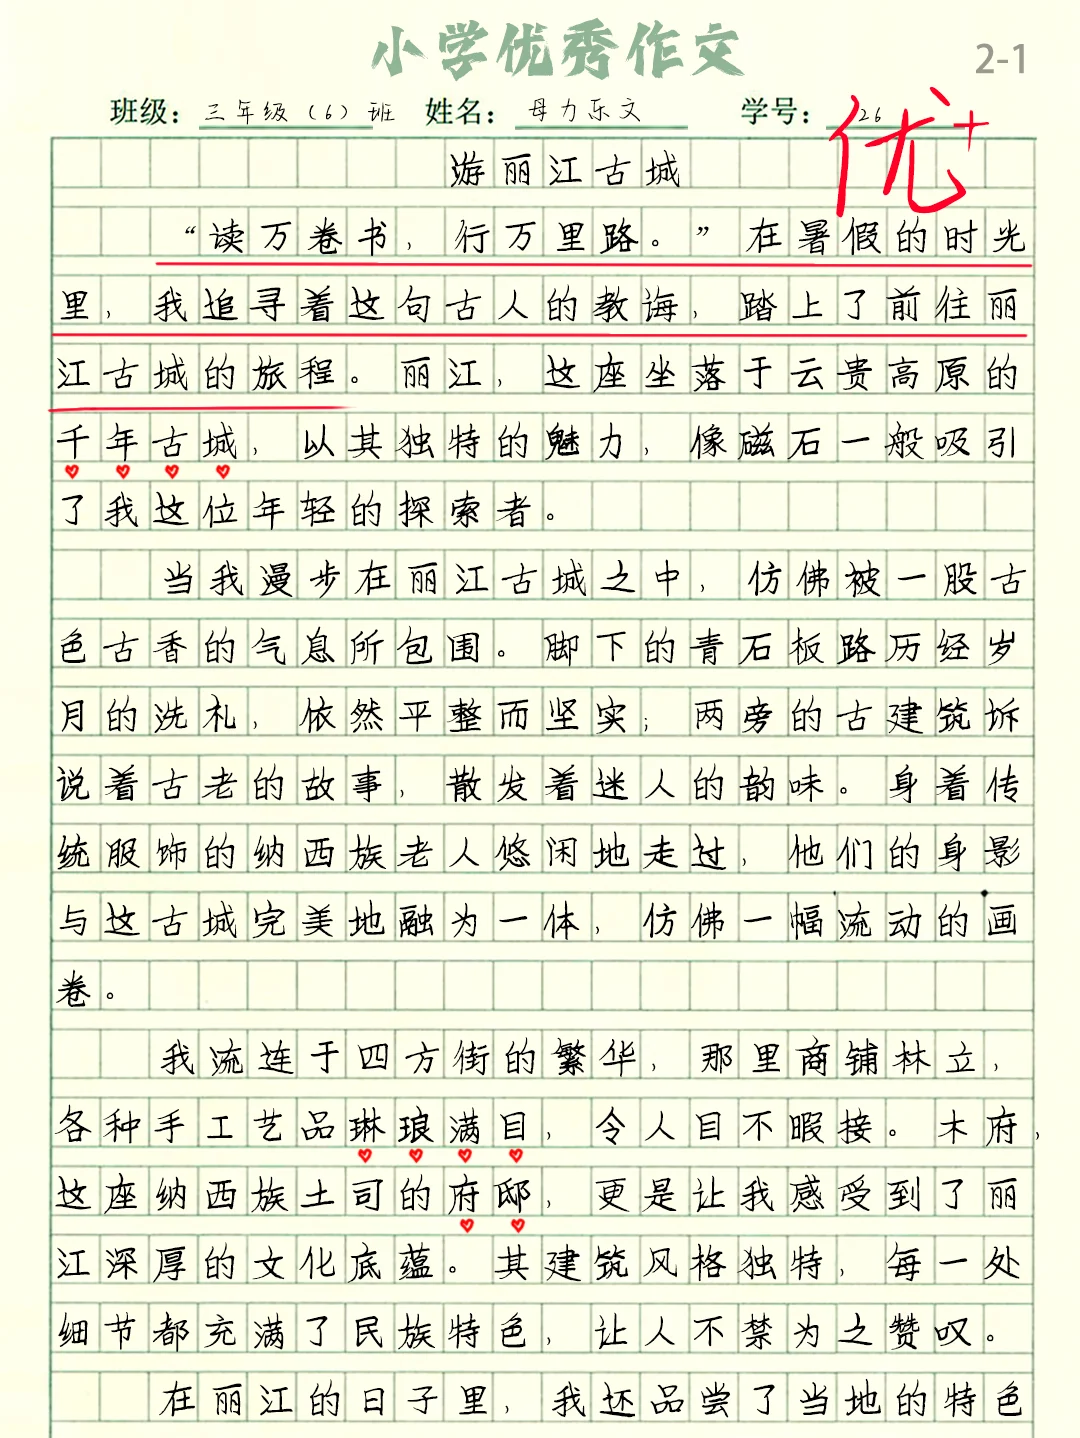 小学优秀作文
2-1
班级：三年级（6）班 姓名：母力乐文 学号：26
优+
游丽江古城
“读万卷书，行万里路。”在暑假的时光
里，我追寻着这句古人的教诲，踏上了前往丽
江古城的旅程。丽江，这座坐落于云贵高原的
千年古城，以其独特的魅力，像磁石一般吸引
了我这位年轻的探索者。
当我漫步在丽江古城之中，仿佛被一股古
色古香的气息所包围。脚下的青石板路历经岁
月的洗礼，依然平整而坚实；两旁的古建筑坼
说着古老的故事，散发着迷人的韵味。身着传
统服饰的纳西族老人悠闲地走过，他们的身影
与这古城完美地融为一体，仿佛一幅流动的画
卷。
我流连于四方街的繁华，那里商铺林立，
各种手工艺品琳琅满目，令人目不暇接。木府，
这座纳西族土司的府邸，更是让我感受到了丽
江深厚的文化底蕴。其建筑风格独特，每一处
细节都充满了民族特色，让人不禁为之赞叹。
在丽江的日子里，我还品尝了当地的特色